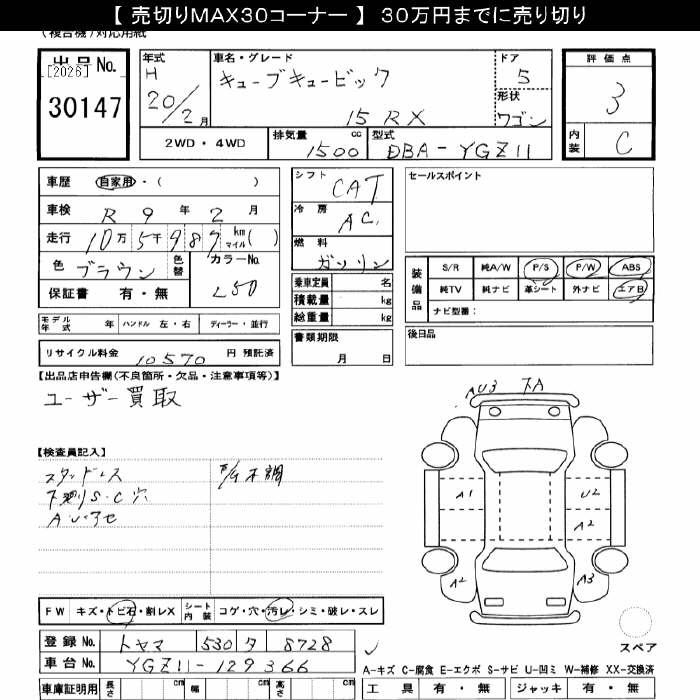 【 売切りMAX30コーナー 】 30万円までに売り切り
(複合機)対応用紙
出品No.
[2026]
30147
年式
H
20/2月
車名・グレード
キューブキュービック
15 RX
ドア
5
形状
ワゴン
評価点
3
内装
C
2WD・4WD
排気量 1500 cc
型式 DBA-YGZ11
車歴 自家用・( )
車検 R 9 年 2 月
走行 10万5千987 km マイル( )
色 ブラウン 色替 カラーNo. L50
保証書 有・無
モデル年式 年 ハンドル 左・右 ディーラー・並行
リサイクル料金 10570 円 預託済
シフト CAT
冷房 AC
燃料 ガソリン
乗車定員 名
積載量 kg
総重量 kg
書類期限
月 日
セールスポイント
装備品
S/R 純A/W P/S P/W ABS
純TV 純ナビ 革シート 外ナビ エアB
ナビ型番:
後日品
【出品店申告欄(不良箇所・欠品・注意事項等)】
ユーザー買取
【検査員記入】
スタッドレス
下廻りS・C穴
A・U・アセ
AU3
A1
U2
A2
A2
A3
スペア
FW キズ・トビ石・割レX シート内装 コゲ・穴・汚レ・シミ・破レ・スレ
登録No. トヤマ 530 タ 8728
車台No. YGZ11-129366
車庫証明用 長さ cm 幅 cm 高さ cm
A-キズ C-腐食 E-エクボ S-サビ U-凹ミ W-補修 XX-交換済
工具 有・無 ジャッキ 有・無